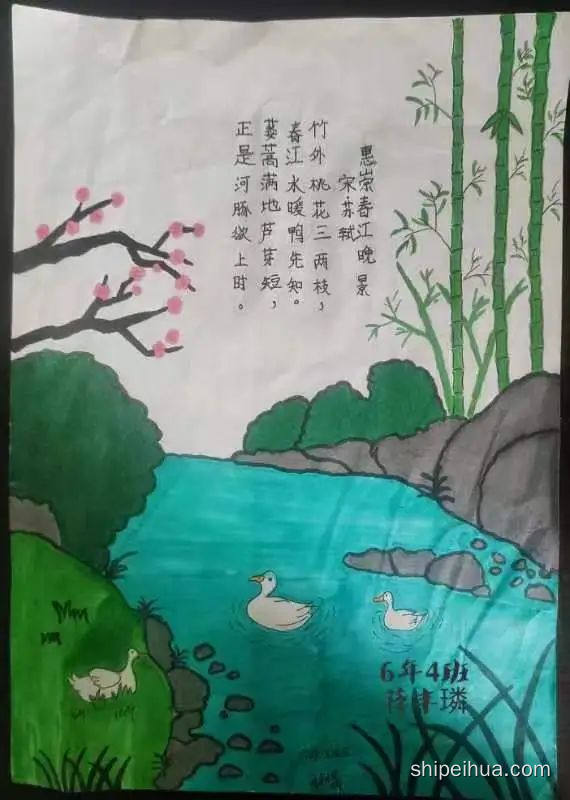 惠崇春江晚景
宋苏轼
竹外桃花三两枝，
春江水暖鸭先知。
蒌蒿满地芦芽短，
正是河豚欲上时。
6年4班
shipeihua.com